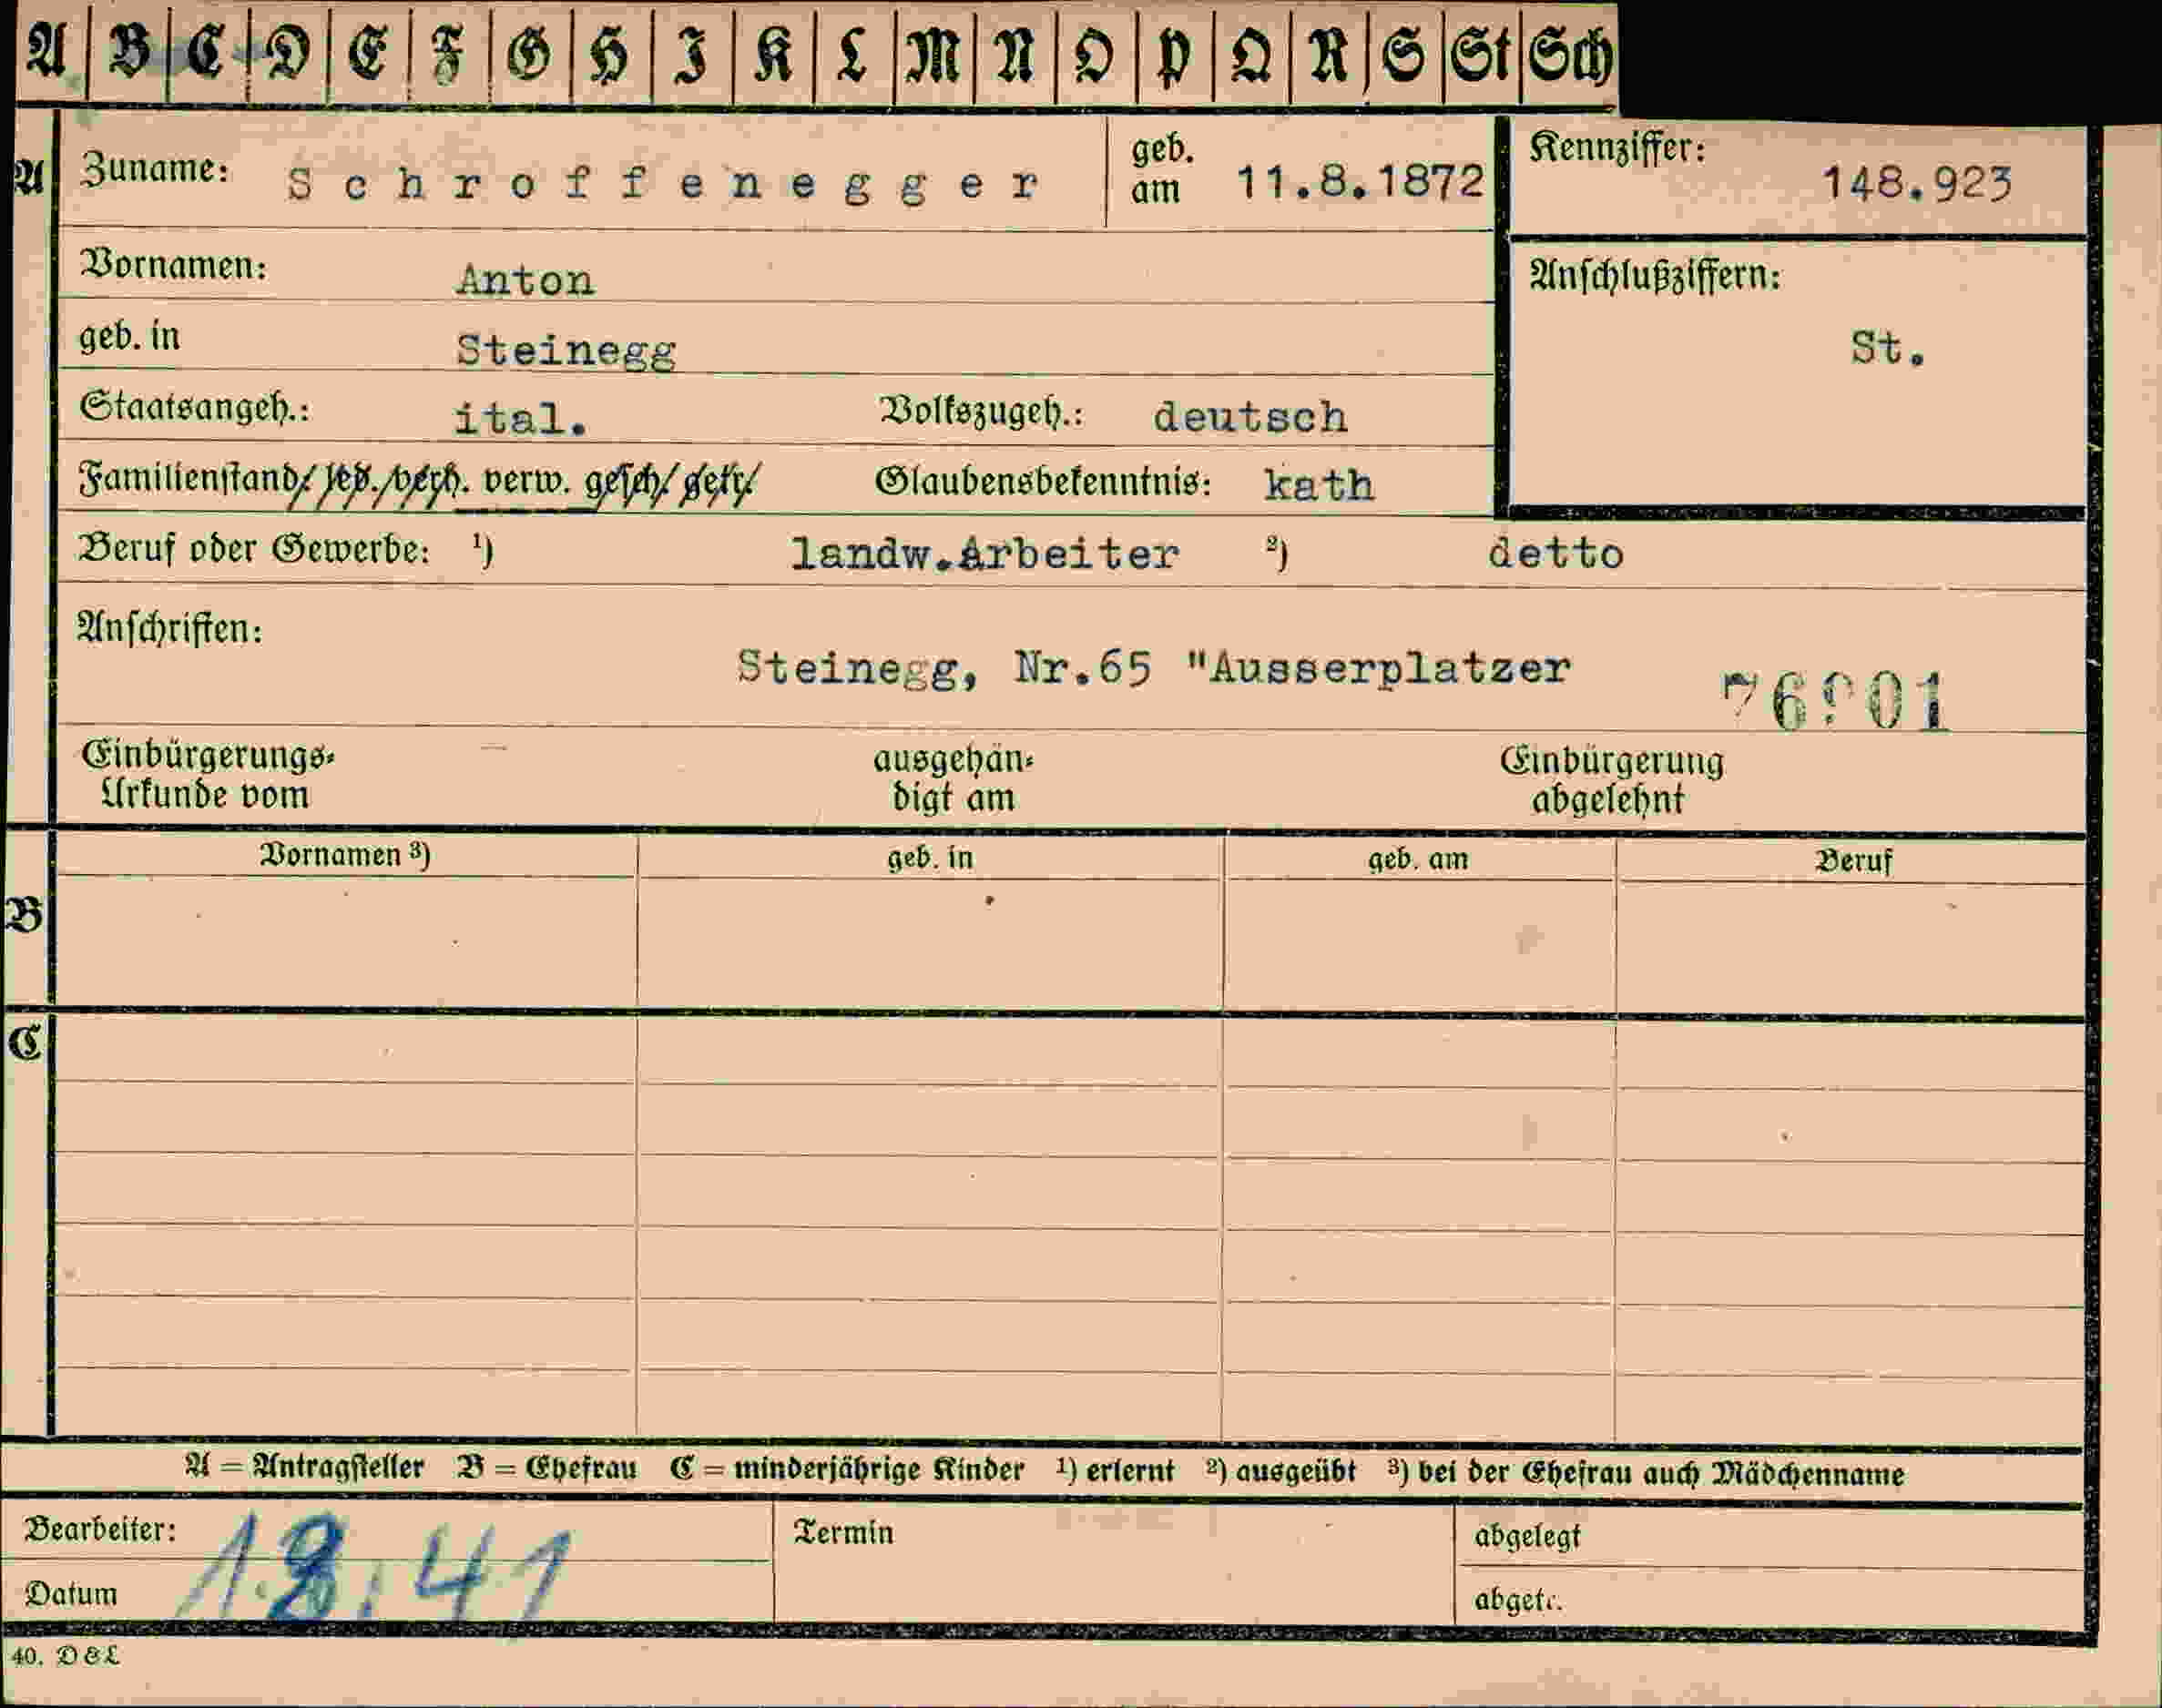 A B C D E F G H I K L M N O P Q R S St Sch
A Zuname: Schroffenegger geb. am 11.8.1872 Kennziffer: 148.923
Vornamen: Anton Anschlußziffern:
geb. in Steinegg St.
Staatsangeh.: ital. Volkszugeh.: deutsch
Familienstand: led. verh. verw. gesch. getr. Glaubensbekenntnis: kath
Beruf oder Gewerbe: ¹) landw.Arbeiter ²) detto
Anschriften:
Steinegg, Nr.65 "Ausserplatzer
Einbürgerungs-Urkunde vom ausgehändigt am Einbürgerung abgelehnt
Vornamen ³) geb. in geb. am Beruf
B
C
A = Antragsteller B = Ehefrau C = minderjährige Kinder ¹) erlernt ²) ausgeübt ³) bei der Ehefrau auch Mädchenname
Bearbeiter: Termin abgelegt
Datum abgetr.
40. D & L